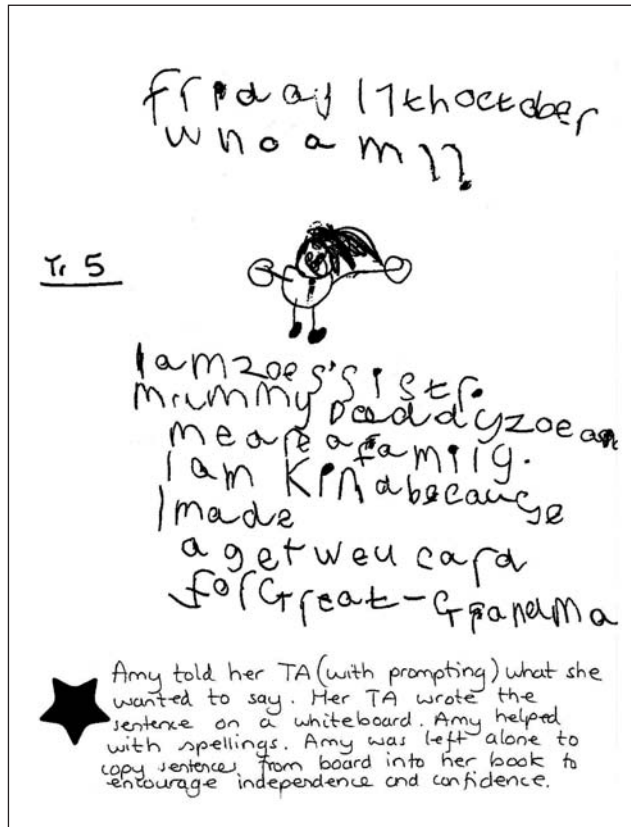 friday 17th october
who am I?
Yr 5
I am zoes's sistr.
mummy Daddy zoe an
me are a family.
I am Kind because
I made
a get well card
for Great-Grandma
Amy told her TA (with prompting) what she
wanted to say. Her TA wrote the
sentence on a whiteboard. Amy helped
with spellings. Amy was left alone to
copy sentences from board into her book to
encourage independence and confidence.